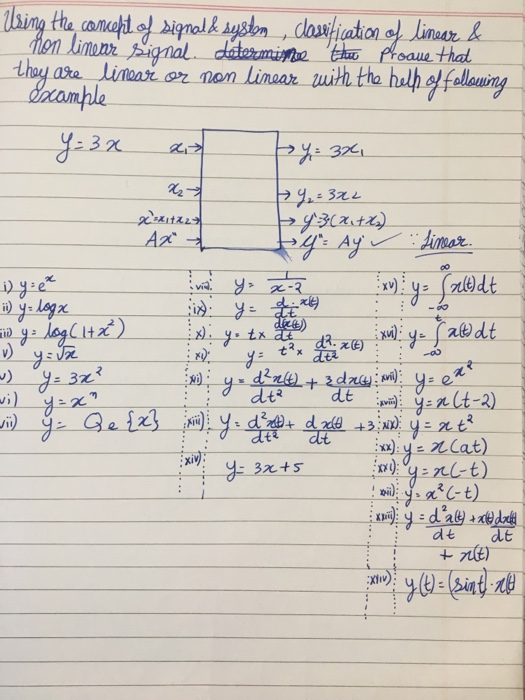 Using the concept of signal & system, classification of linear &
non linear signal. determine the Proave that
they are linear or non linear with the help of following
example
y = 3x
x₁→ → y₁ = 3x₁
x₂→ → y₂ = 3x₂
x'=x₁+x₂→ → y'=3(x₁+x₂)
Ax" → → y" = Ay' ✓ ∵ linear.
i) y = eˣ
ii) y = log x
iii) y = log(1+x²)
v) y = √x
v) y = 3x²
vi) y = xⁿ
vii) y = Qe{x}
viii) y = 1/(x-2)
ix) y = d/dt x(t)
x) y = tx d(x(t))/dt
xi) y = t² x d²·x(t)/dt²
xi) y = d²x(t)/dt² + 3dx(t)/dt
xiii) y = d²x(t)/dt² + dx(t)/dt + 3
xiv) y = 3x+5
xv) y = ∫_{-∞}^{∞} x(t)dt
xvi) y = ∫_{-∞}^{t} x(t)dt
xvii) y = e^{x²}
xviii) y = x(t-2)
xix) y = xt²
xx) y = x(at)
xxi) y = x(-t)
xxii) y = x²(-t)
xxiii) y = d²x(t)/dt + x(t)dx(t)/dt
+ x(t)
xxiv) y(t) = (sint)·x(t)